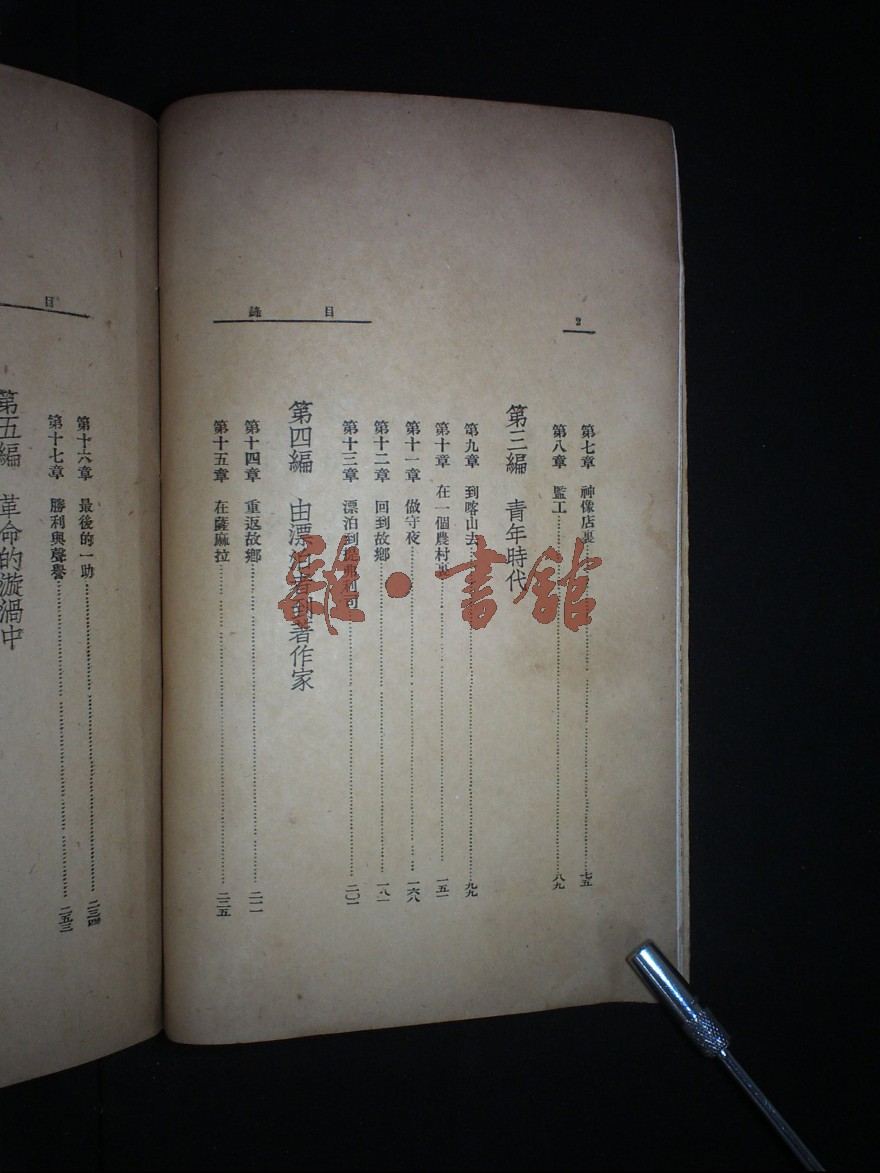 2
目錄
第七章　神像店裏 七五
第八章　監工 八九
第三編　青年時代
第九章　到喀山去 九九
第十章　在一個農村裏 一五一
第十一章　做守夜 一六八
第十二章　回到故鄉 一八一
第十三章　漂泊到提弗利司 二〇一
第四編　由漂泊者到著作家
第十四章　重返故鄉 二一一
第十五章　在薩麻拉 二二五
目
第十六章　最後的一助 二三四
第十七章　勝利與聲譽 二五三
第五編　革命的漩渦中
雜·書館